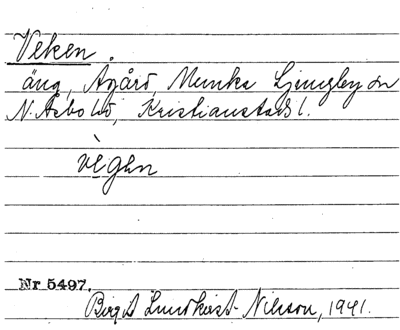 Veken
äng, Ågård, Munka Ljungby sn
N. Åsbo hd, Kristianstads l.
vègen
Nr 5497.
Birgit Lundkvist-Nilsson, 1941.